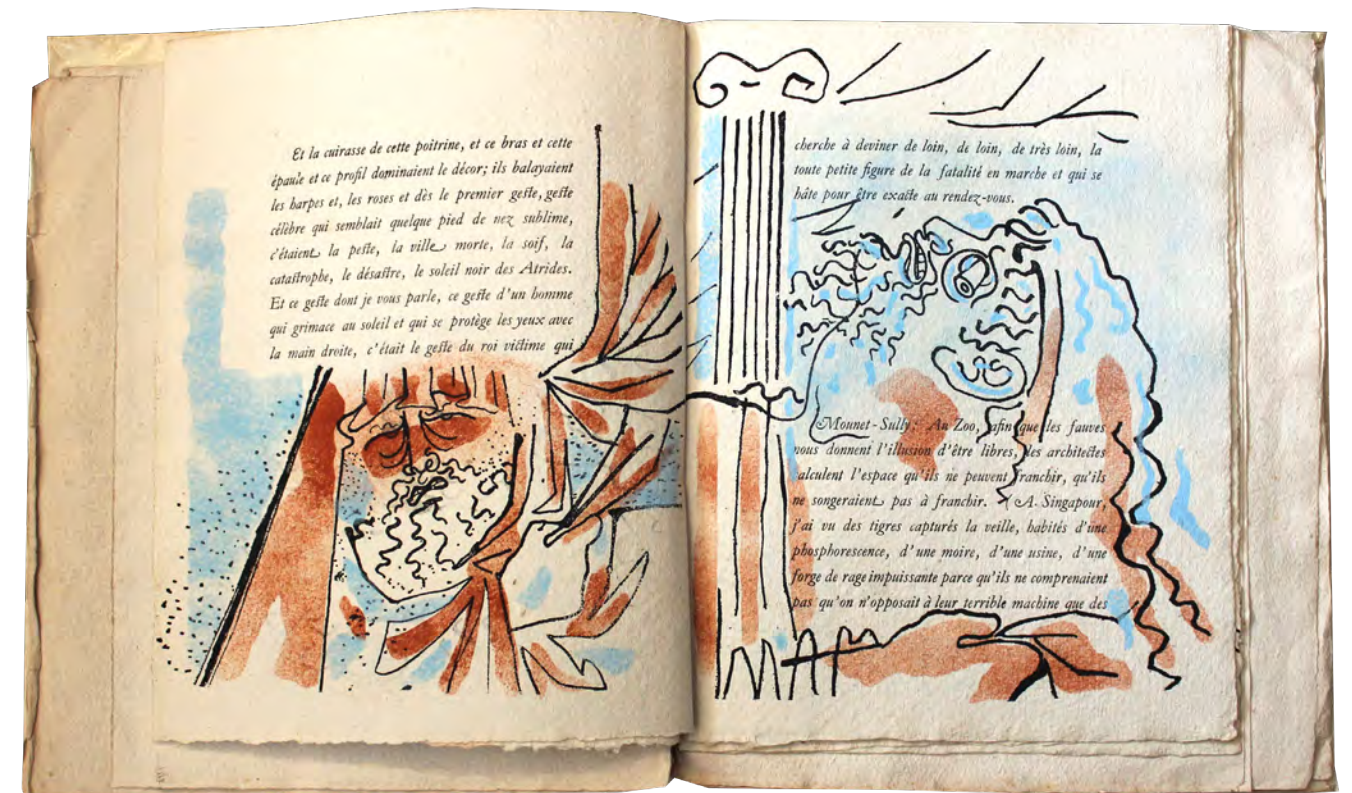 Et la cuirasse de cette poitrine, et ce bras et cette
épaule et ce profil dominaient le décor; ils balayaient
les harpes et, les roses et dès le premier geste, geste
célèbre qui semblait quelque pied de nez sublime,
c'étaient la peste, la ville morte, la soif, la
catastrophe, le désastre, le soleil noir des Atrides.
Et ce geste dont je vous parle, ce geste d'un homme
qui grimace au soleil et qui se protège les yeux avec
la main droite, c'était le geste du roi victime qui
cherche à deviner de loin, de loin, de très loin, la
toute petite figure de la fatalité en marche et qui se
hâte pour être exacte au rendez-vous.
Mounet-Sully. Au Zoo, afin que les fauves
nous donnent l'illusion d'être libres, les architectes
calculent l'espace qu'ils ne peuvent franchir, qu'ils
ne songeraient pas à franchir. A Singapour,
j'ai vu des tigres capturés la veille, habités d'une
phosphorescence, d'une moire, d'une usine, d'une
forge de rage impuissante parce qu'ils ne comprenaient
pas qu'on n'opposait à leur terrible machine que des